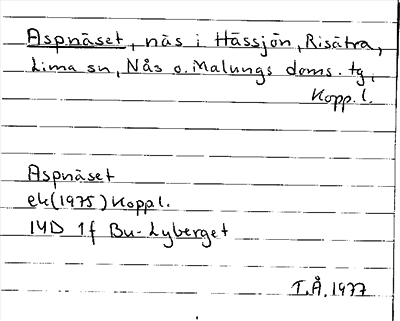 Aspnäset, näs i Hässjön, Risätra,
Lima sn, Nås o. Malungs doms. tg,
Kopp. l.
Aspnäset
ek (1975) Koppl.
14D 1f Bu-Lyberget
T.Å. 1977